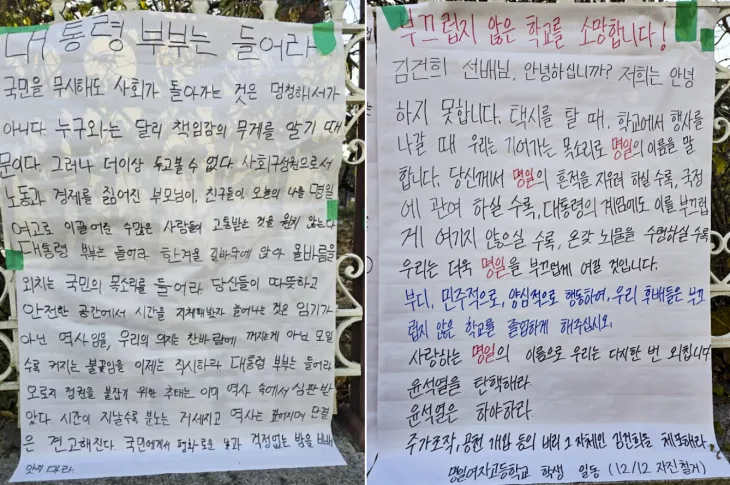 대통령 부부는 들어라
국민을 무시해도 사회가 돌아가는 것은 멍청해서가
아니다. 누구와는 달리 책임감의 무게를 알기 때
문이다. 그러나 더이상 두고볼 수 없다. 사회구성원으로서
노동과 경제를 짊어진 부모님이, 친구들이, 오늘의 나를 명일
여고로 이끌어준 수많은 사람들이 고통받는 것을 원치 않는다.
대통령 부부는 들어라. 한겨울 길바닥에 앉아 올바름을
외치는 국민의 목소리를 들어라. 당신들이 따뜻하고
안전한 공간에서 시간을 지체해봤자 늘어나는 것은 임기가
아닌 역사임을, 우리의 의지는 찬바람에 꺼지는게 아닌 모일
수록 커지는 불꽃임을 이제는 직시하라. 대통령 부부는 들어라.
오로지 정권을 붙잡기 위한 추태는 이미 역사 속에서 심판 받
았다. 시간이 지날수록 분노는 거세지고 역사는 깊어지며 단결
은 견고해진다. 국민에게서 평화로운 낮과 걱정없는 밤을 빼앗
지 마라.
부끄럽지 않은 학교를 소망합니다!
김건희 선배님, 안녕하십니까? 저희는 안녕
하지 못합니다. 택시를 탈 때, 학교에서 행사를
나갈 때 우리는 기어가는 목소리로 명일의 이름을 말
합니다. 당신께서 명일의 흔적을 지우려 하실 수록, 국정
에 관여 하실 수록, 대통령의 계엄에도 이를 부끄럽
게 여기지 않으실 수록, 온갖 뇌물을 수령하실 수록
우리는 더욱 명일을 부끄럽게 여길 것입니다.
부디, 민주적으로, 양심적으로 행동하여, 우리 후배들은 부끄
럽지 않은 학교를 졸업하게 해주십시오.
사랑하는 명일의 이름으로 우리는 다시한 번 외칩니다
윤석열을 탄핵해라
윤석열은 하야하라.
주가조작, 공천 개입 등의 비리 그 자체인 김건희를 체포해라
명일여자고등학교 학생 일동 (12/12 자진철거)